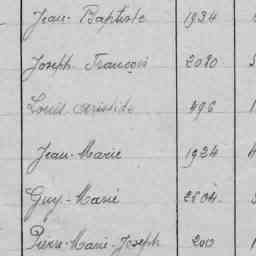 Jean-Baptiste 1934
Joseph-François 2080
Louis Aristide 496
Jean-Marie 1924
Guy-Marie 2204
Pierre-Marie-Joseph 200